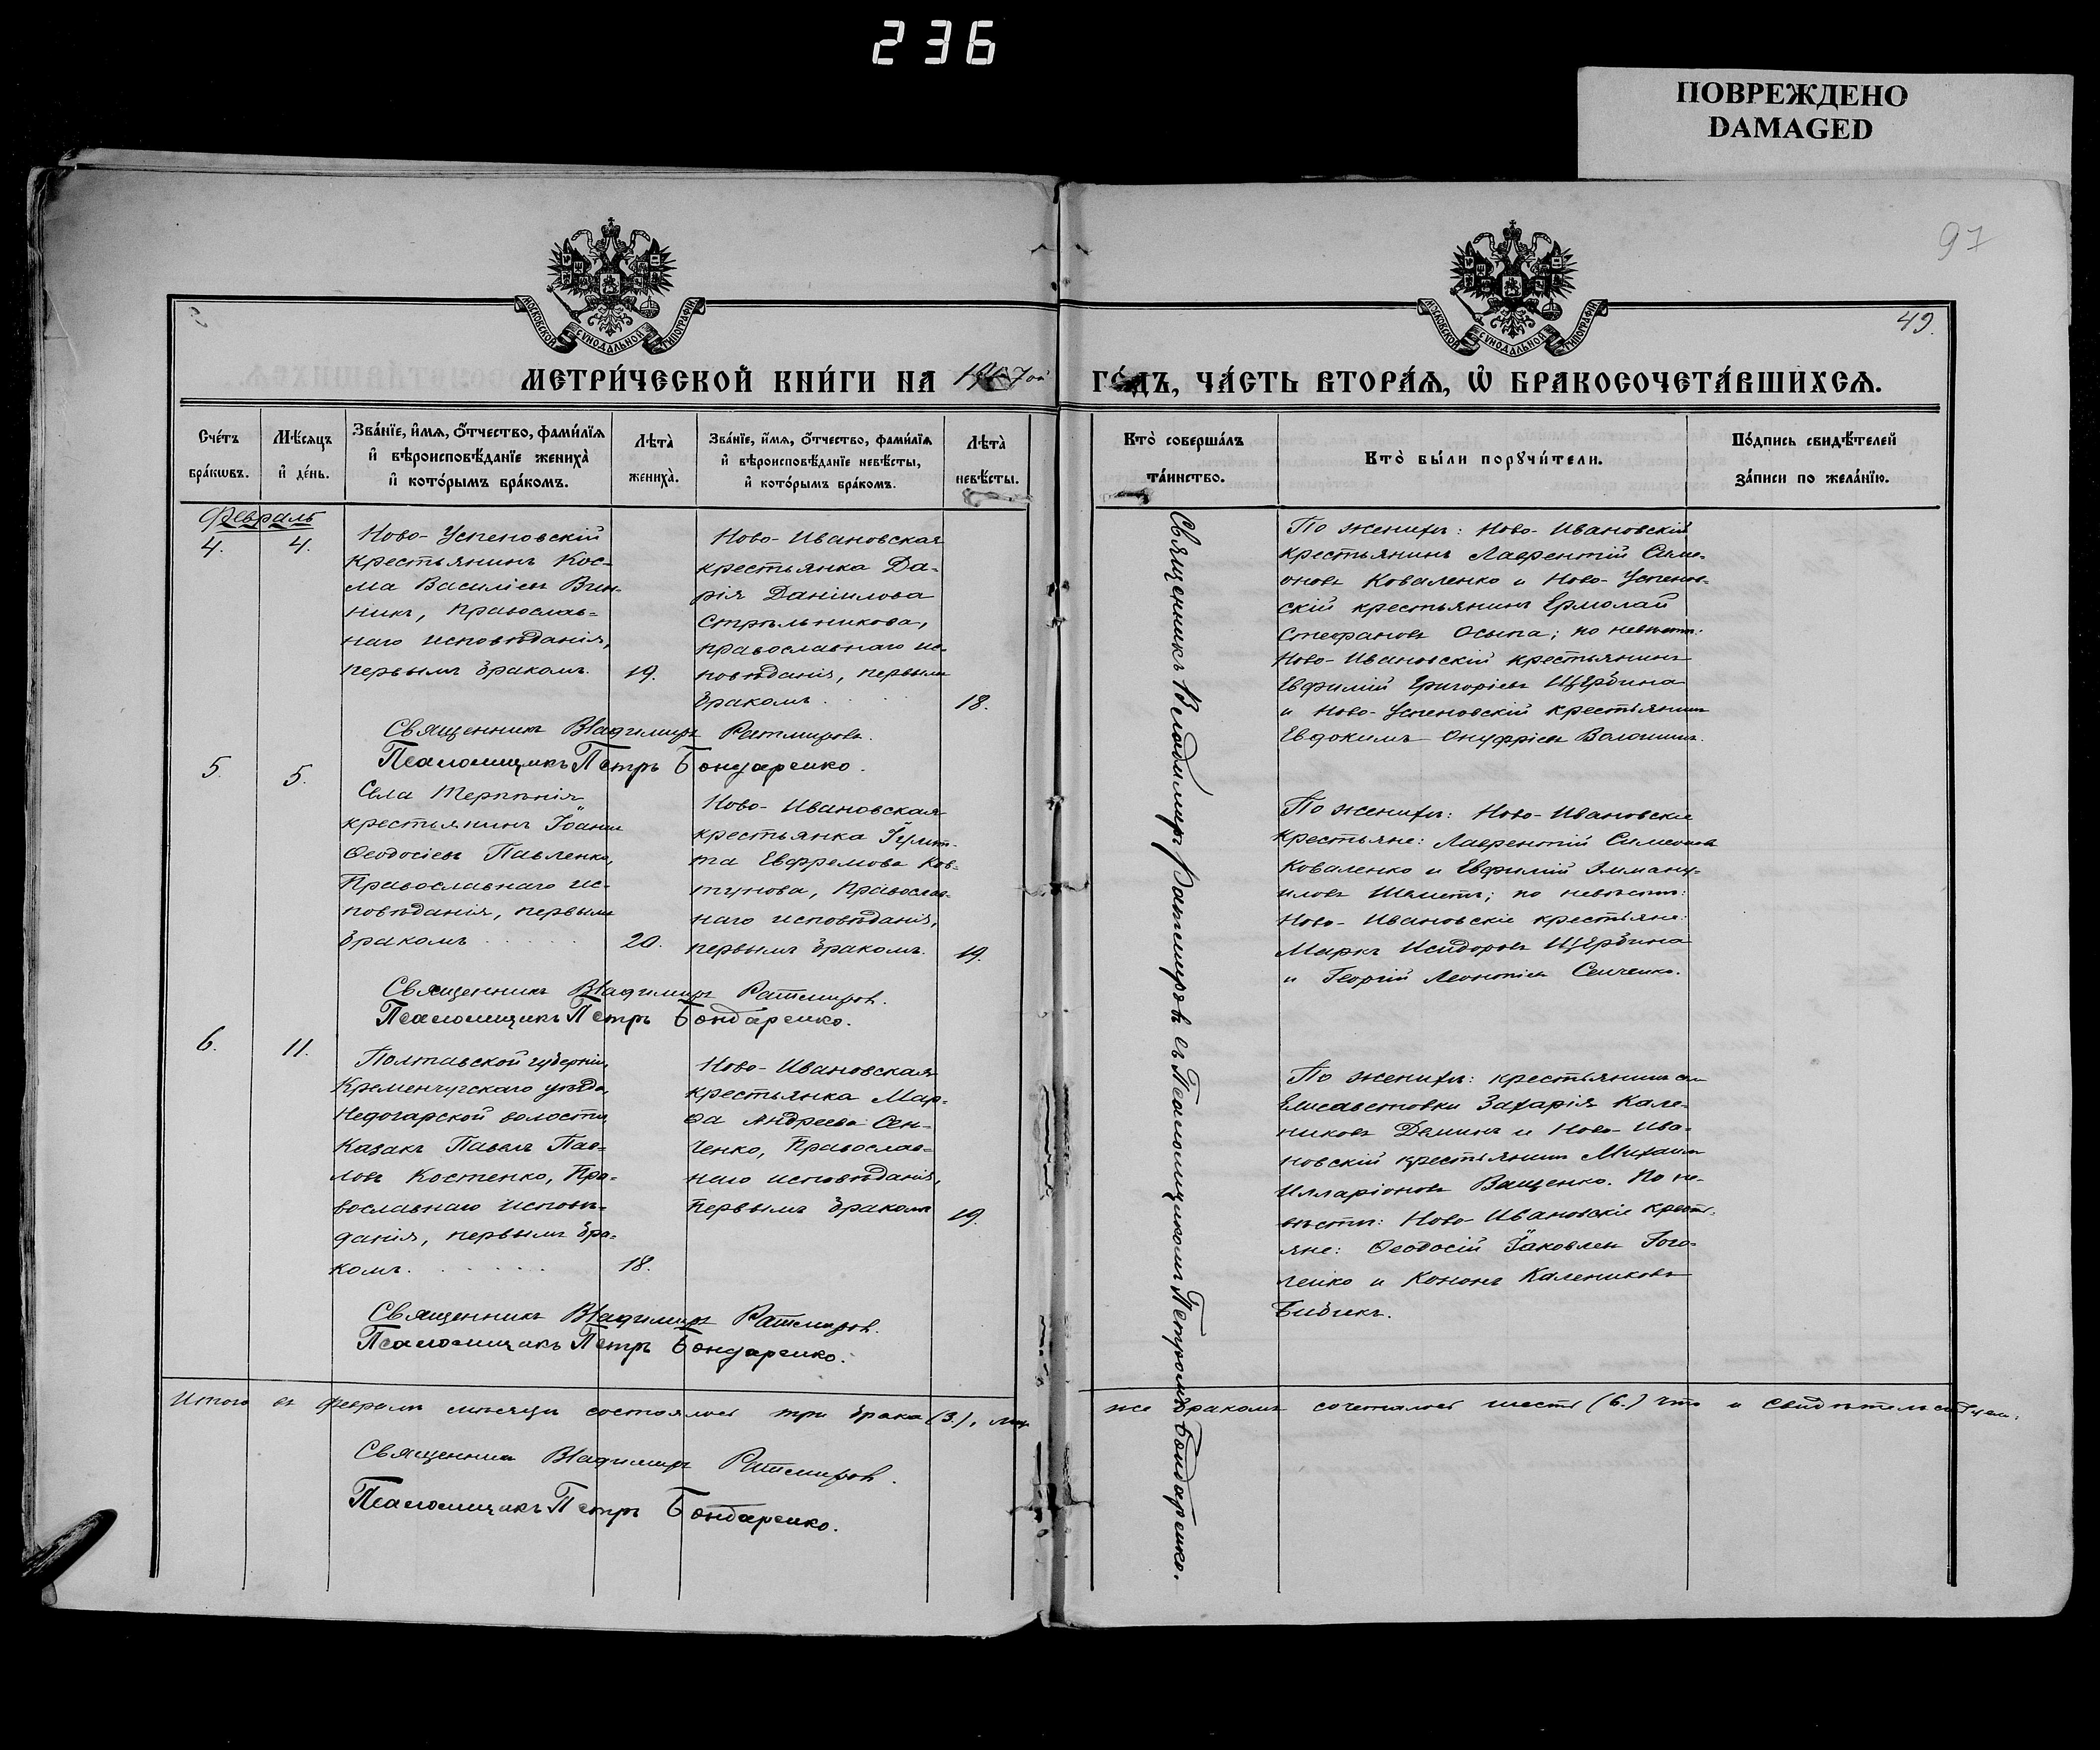 236
ПОВРЕЖДЕНО
DAMAGED
97
49.
МОСКОВСКОЙ СѴНОДАЛЬНОЙ ТИПОГРАФІИ
МОСКОВСКОЙ СѴНОДАЛЬНОЙ ТИПОГРАФІИ
МЕТРИ́ЧЕСКОЙ КНИ́ГИ НА
ГО́ДЪ, ЧА́СТЬ ВТОРА́Я, Ѡ҆ БРАКОСОЧЕТА́ВШИХСЯ.
Сче́тъ
бра́кѡвъ.
Мѣ́сяцъ
и҆ де́нь.
Зва́нїе, и҆́мѧ, ѻ҆́тчество, фами́лїѧ
и҆ вѣроисповѣ́данїе жениха̀
и҆ кото́рымъ бра́комъ.
Лѣ́та
жениха̀.
Зва́нїе, и҆́мѧ, ѻ҆́тчество, фами́лїѧ
и҆ вѣроисповѣ́данїе невѣ́сты,
и҆ кото́рымъ бра́комъ.
Лѣ́та
невѣ́сты.
Кто̀ соверша́лъ
та́инство.
Кто̀ бы́ли порꙋчи́тели.
По́дпись свидѣ́телей
за́писи по жела́нїю.
Февраль
4.
4.
Ново-Успеновскій
крестьянинъ Кос-
ма Василіевъ Вин-
никъ, православ-
наго исповѣданія,
первымъ бракомъ.
19.
Ново-Ивановская
крестьянка Да-
рія Даніилова
Стрѣльникова,
православнаго ис-
повѣданія, первымъ
бракомъ.
18.
Священникъ Владимиръ Ратмировъ.
Псаломщикъ Петръ Бондаренко.
По женихѣ: Ново-Ивановскій
крестьянинъ Лаврентій Симе-
оновъ Коваленко и Ново-Успенов-
скій крестьянинъ Ермолай
Стефановъ Осыпа; по невѣстѣ:
Ново-Ивановскій крестьянинъ
Евфимій Григоріевъ Щербина
и Ново-Успеновскій крестьянинъ
Евдокимъ Онуфріевъ Волошинъ.
5.
5.
Села Терпѣнія
крестьянинъ Іоаннъ
Ѳеодосіевъ Павленко,
Православнаго ис-
повѣданія, первымъ
бракомъ . . . . .
20.
Ново-Ивановская
крестьянка Іулит-
та Евфремова Ков-
тунова, Православ-
наго исповѣданія,
первымъ бракомъ.
19.
Священникъ Владимиръ Ратмировъ.
Псаломщикъ Петръ Бондаренко.
По женихѣ: Ново-Ивановскіе
крестьяне: Лаврентій Симеоновъ
Коваленко и Евфимій
по невѣстѣ:
Ново-Ивановскіе крестьяне:
Маркъ Исидоровъ Щербина
и Георгій Леонтіевъ Сенченко.
6.
11.
Полтавской губерніи,
Кременчугскаго уѣзда,
Недогарской волости,
Казакъ Павелъ Пав-
ловъ Костенко, Пра-
вославнаго исповѣ-
данія, первымъ бра-
комъ. . . . . .
18.
Ново-Ивановская
крестьянка Мар-
ѳа Андреева Сен-
ченко, Православ-
наго исповѣданія,
первымъ бракомъ
19.
Священникъ Владимиръ Ратмировъ.
Псаломщикъ Петръ Бондаренко.
По женихѣ: крестьянинъ
Елисаветовки Захарія Кале-
никовъ Деминъ и Ново-Ива-
новскій крестьянинъ Михаилъ
Илларіоновъ Ващенко. По не-
вѣстѣ: Ново-Ивановскіе кресть-
яне: Ѳеодосій Іаковлевъ Гого-
ленко и Кононъ Калениковъ
Бибикъ.
Священникъ Владимиръ Ратмировъ съ Псаломщикомъ Петромъ Бондаренко.
Итого въ Февралѣ мѣсяцѣ состоялось три брака (3.), лицъ
же бракомъ сочеталось шесть (6.) что и свидѣтельствуемъ:
Священникъ Владимиръ Ратмировъ.
Псаломщикъ Петръ Бондаренко.